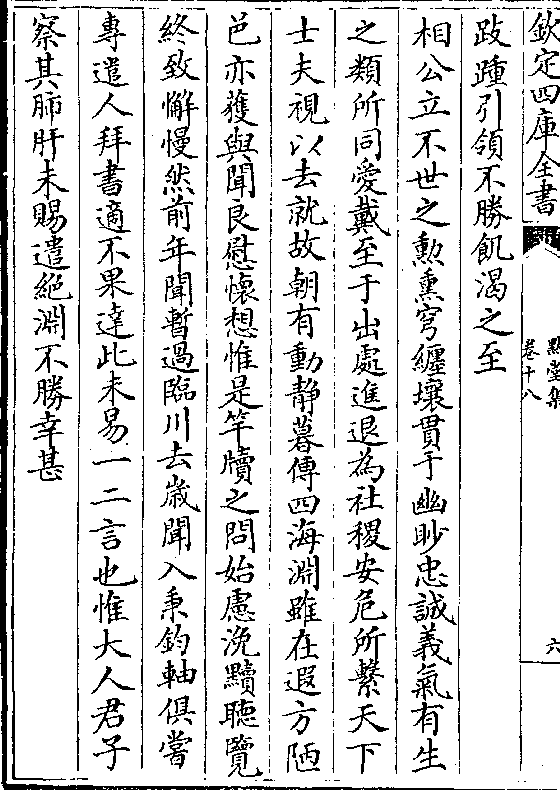 欽定四庫全書
默堂集
卷十八
六
跂踵引領不勝飢渴之至
相公立不世之勲熏穹纏壤貫于幽眇忠誠義氣有生
之類所同愛戴至于出處進退為社稷安危所繫天下
士夫視以去就故朝有動静暮傳四海淵雖在遐方陋
邑亦獲與聞良慰懐想惟是竿牘之問始慮浼黷聽覽
終致懈慢然前年聞暫過臨川去歳聞入秉鈞軸俱嘗
專遣人拜書適不果達此未易一二言也惟大人君子
察其肺肝未賜遣絶淵不勝幸甚